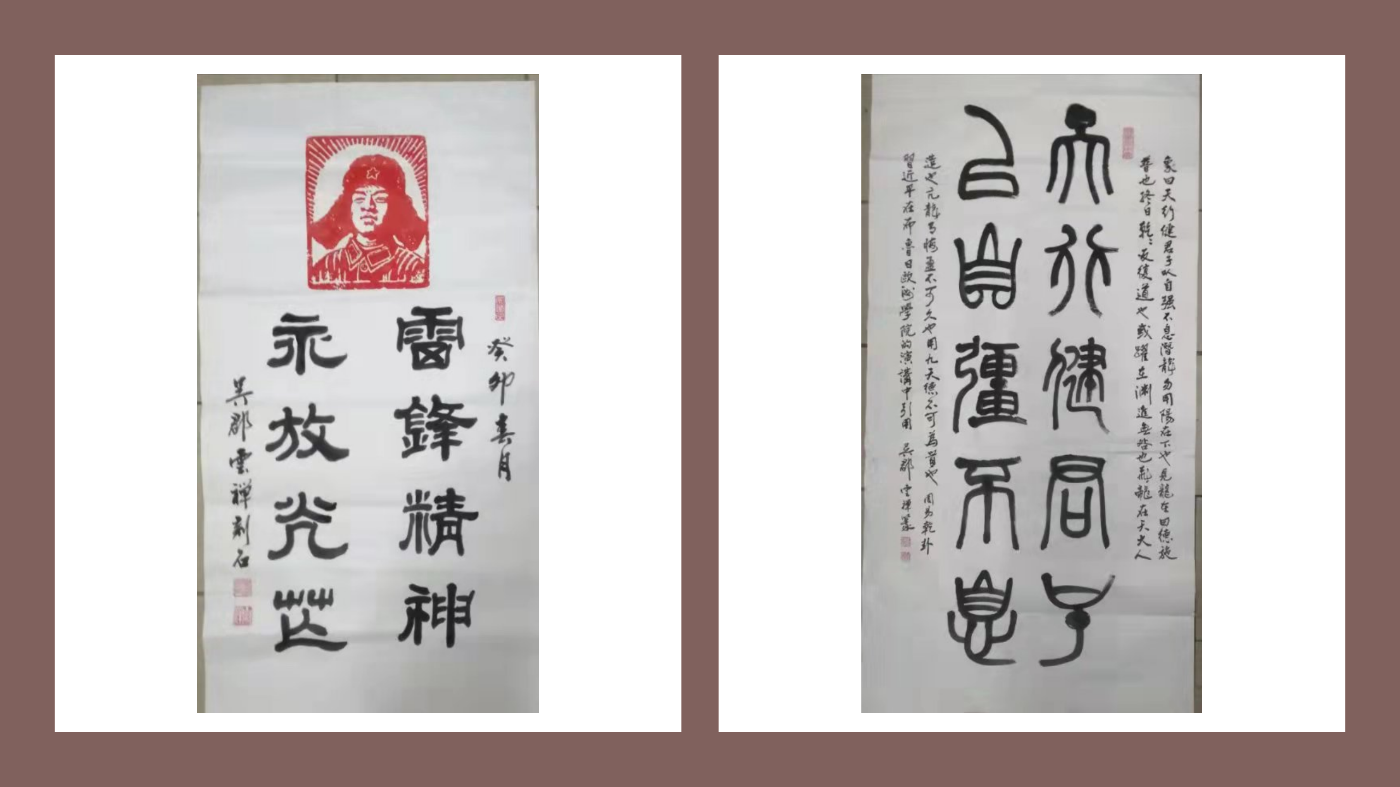 癸卯春月
雷鋒精神
永放光芒
吳郡雲禅刻石
象曰天行健君子以自强不息潛龍勿用陽在下也見龍在田德施
普也終日乾乾反復道也或躍在淵進無咎也飛龍在天大人
天行健君子
以自彊不息
造也亢龍有悔盈不可久也用九天德不可為首也 周易乾卦
習近平在布魯日歐洲學院的演講中引用 吳郡雲禅篆